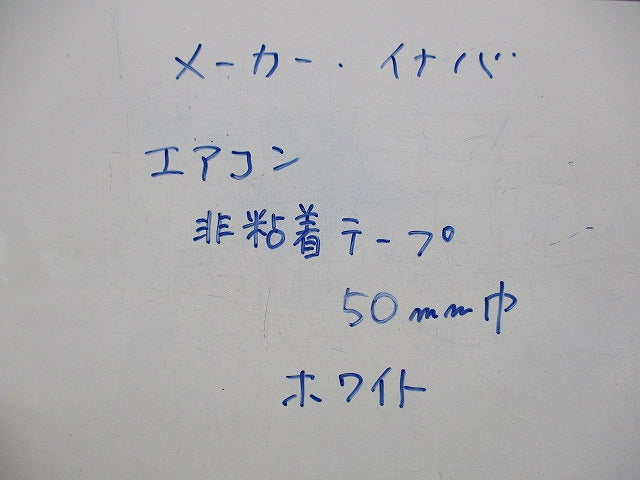 メーカー・イナバ
エアコン
非粘着テープ
50mm巾
ホワイト